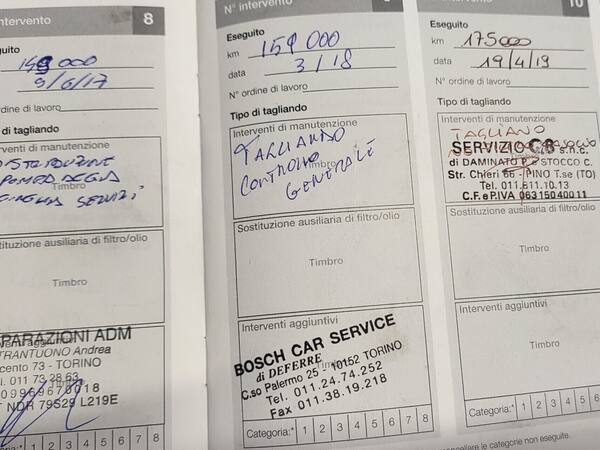 8
intervento
uito
149000
9/6/17
rdine di lavoro
di tagliando
venti di manutenzione
DISTRIBUZIONE
POMPA ACQUA
Timbro
CINGHIA SERVIZI
tituzione ausiliaria di filtro/olio
Timbro
PARAZIONI ADM
TRANTUONO Andrea
cento 73 - TORINO
l. 011 73 28 63
09969670018
T NDR 79S29 L219E
1 2 3 4 5 6 7 8
N° intervento
Eseguito
km 159 000
data 3/18
N° ordine di lavoro
Tipo di tagliando
Interventi di manutenzione
TAGLIANDO
CONTROLLO
GENERALE
Sostituzione ausiliaria di filtro/olio
Timbro
Interventi aggiuntivi
BOSCH CAR SERVICE
di DEFERRE
C.so Palermo 25 - 10152 TORINO
Tel. 011.24.74.252
Fax 011.38.19.218
Categoria:* 1 2 3 4 5 6 7 8
10
N° intervento
Eseguito
km 175000
data 19/4/19
N° ordine di lavoro
Tipo di tagliando
Interventi di manutenzione
TAGLIANO
SERVIZIO CB s.n.c.
di DAMINATO P. STOCCO C.
Str. Chieri 66 - PINO T.se (TO)
Tel. 011.811.10.13
C.F. e P.IVA 06315040011
Sostituzione ausiliaria di filtro/olio
Timbro
Interventi aggiuntivi
Timbro
Categoria:* 1 2 3 4 5 6 7
cancellare le categorie non eseguite.